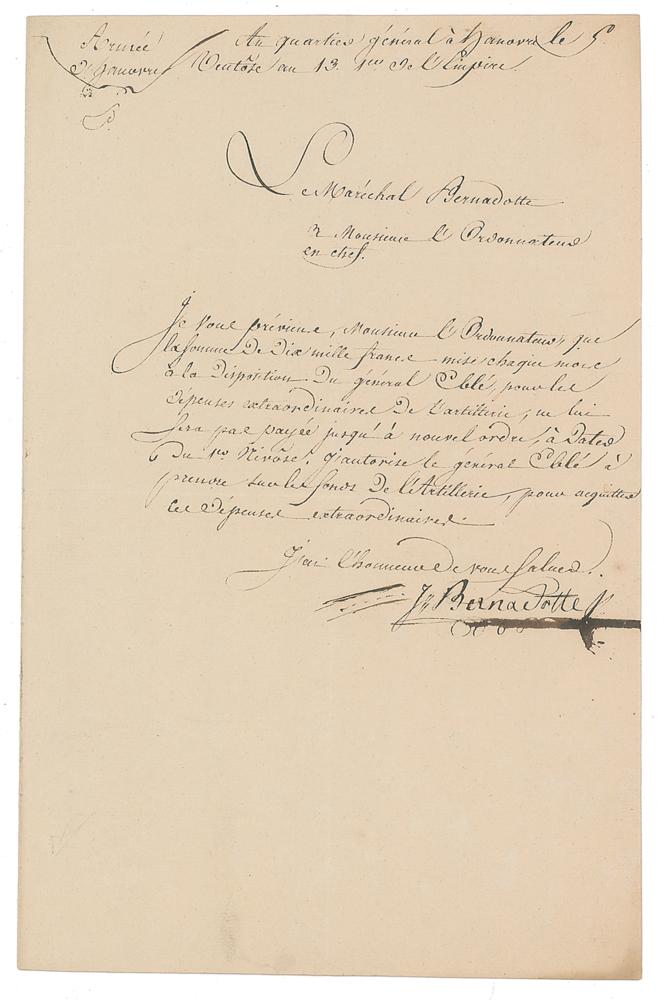 Armée
d'Hanovre
Au quartier général à Hanovre le 5.
Ventôse an 13. 1er de l'Empire.
Le Maréchal Bernadotte
à Monsieur l'Ordonnateur
en chef.
Je vous préviens, Monsieur l'Ordonnateur, que
la somme de dix mille francs mise chaque mois
à la disposition du général Eblé, pour les
dépenses extraordinaires de l'artillerie, ne lui
sera pas payée jusqu'à nouvel ordre, à dater
du 1er Nivôse. J'autorise le général Eblé à
prendre sur les fonds de l'Artillerie, pour acquitter
ces dépenses extraordinaires.
J'ai l'honneur de vous saluer.
Bernadotte